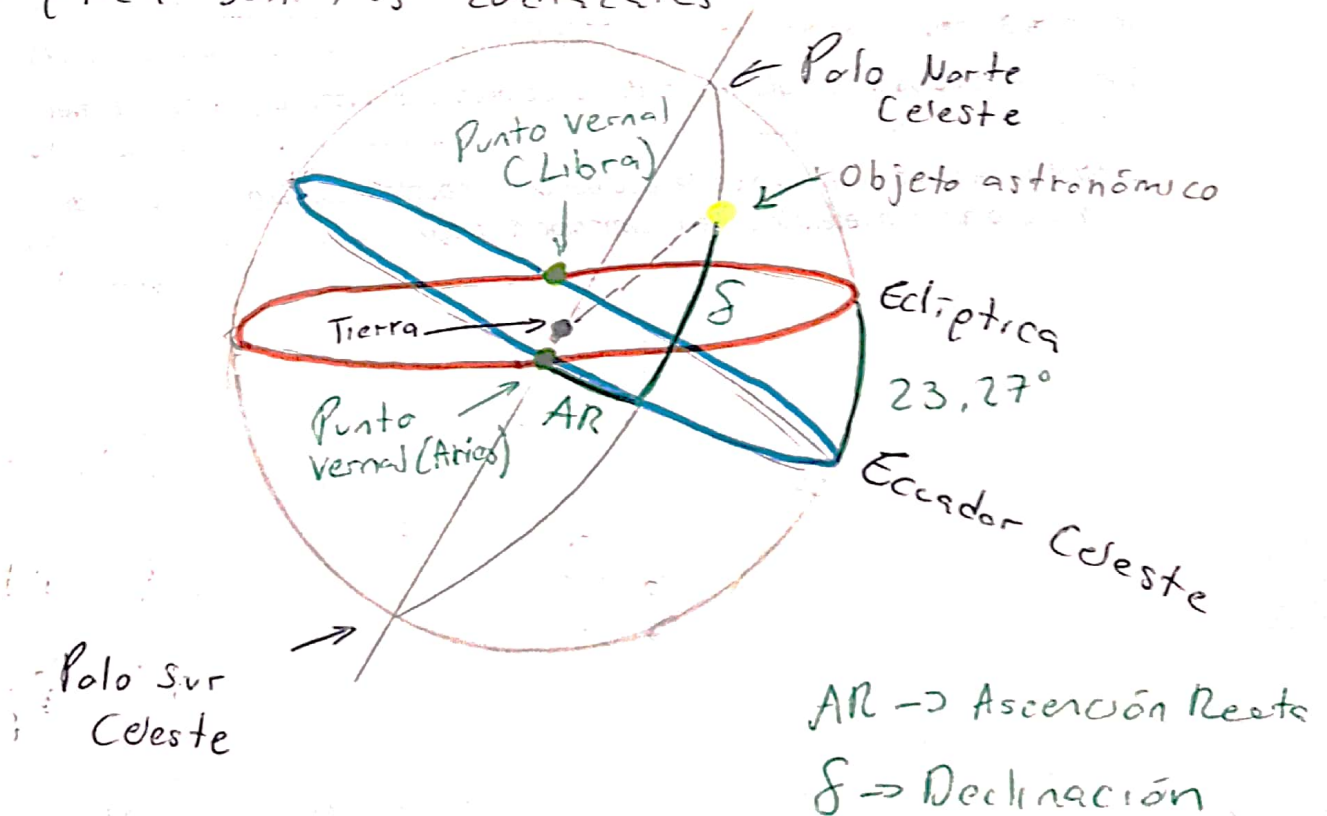 Polo Norte
Celeste
Punto vernal
(Libra)
Objeto astronómico
Eclíptica
Tierra
23,27°
Punto
vernal (Aries)
AR
δ
Ecuador Celeste
Polo Sur
Celeste
AR -> Ascención Recta
δ -> Declinación